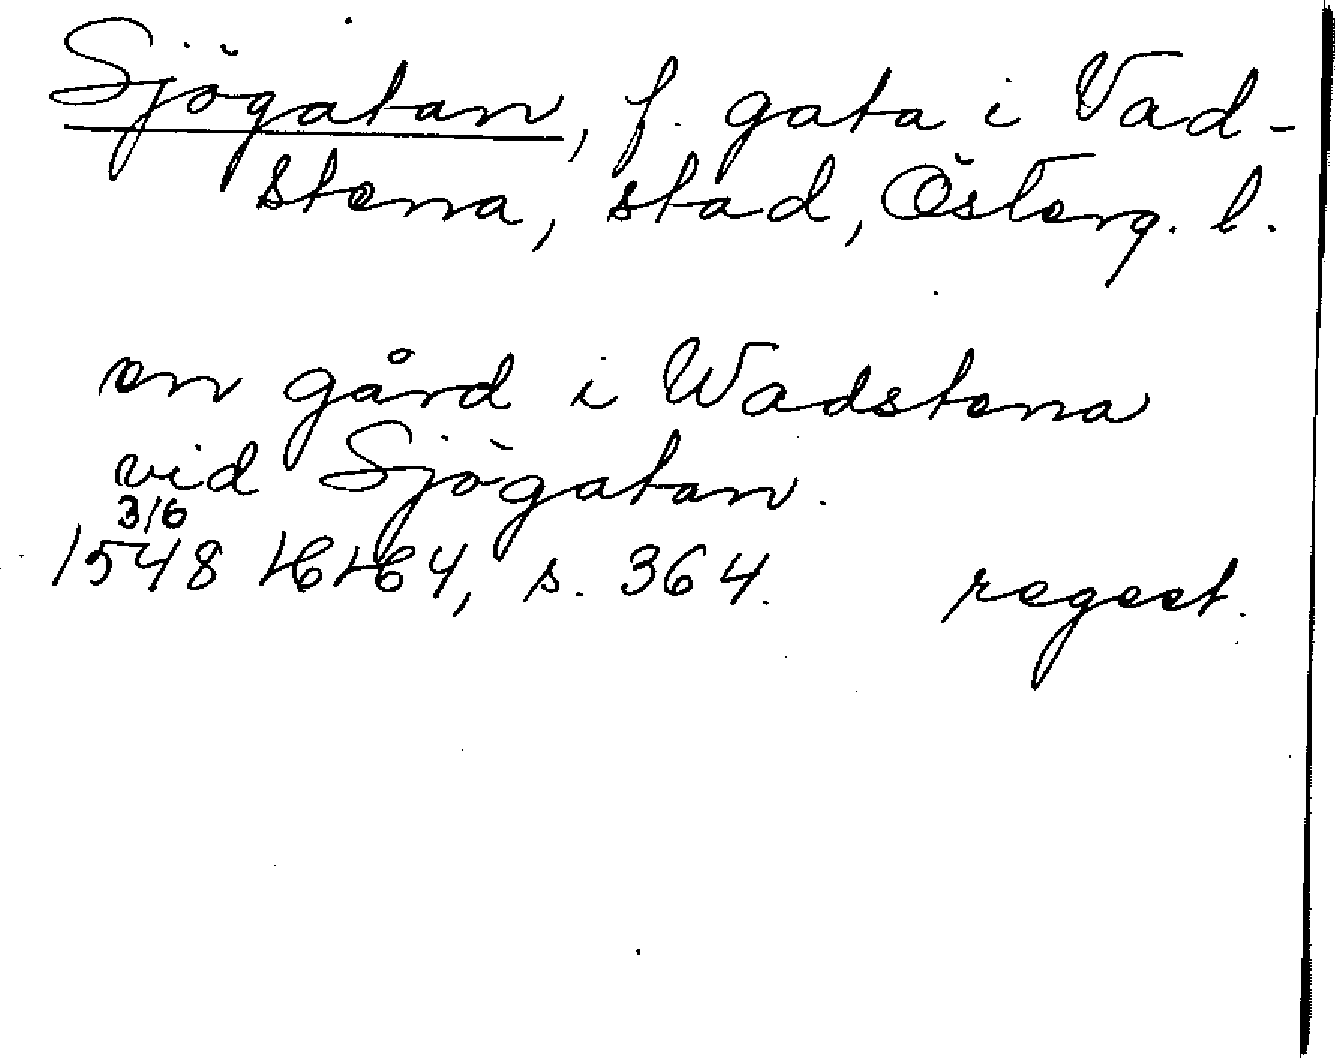 Sjögatan, f. gata i Vad-
stena, stad, Österg. l.
en gård i Wadstena
vid Sjögatan.
3/6
1548 HH 4, s. 364. regest.